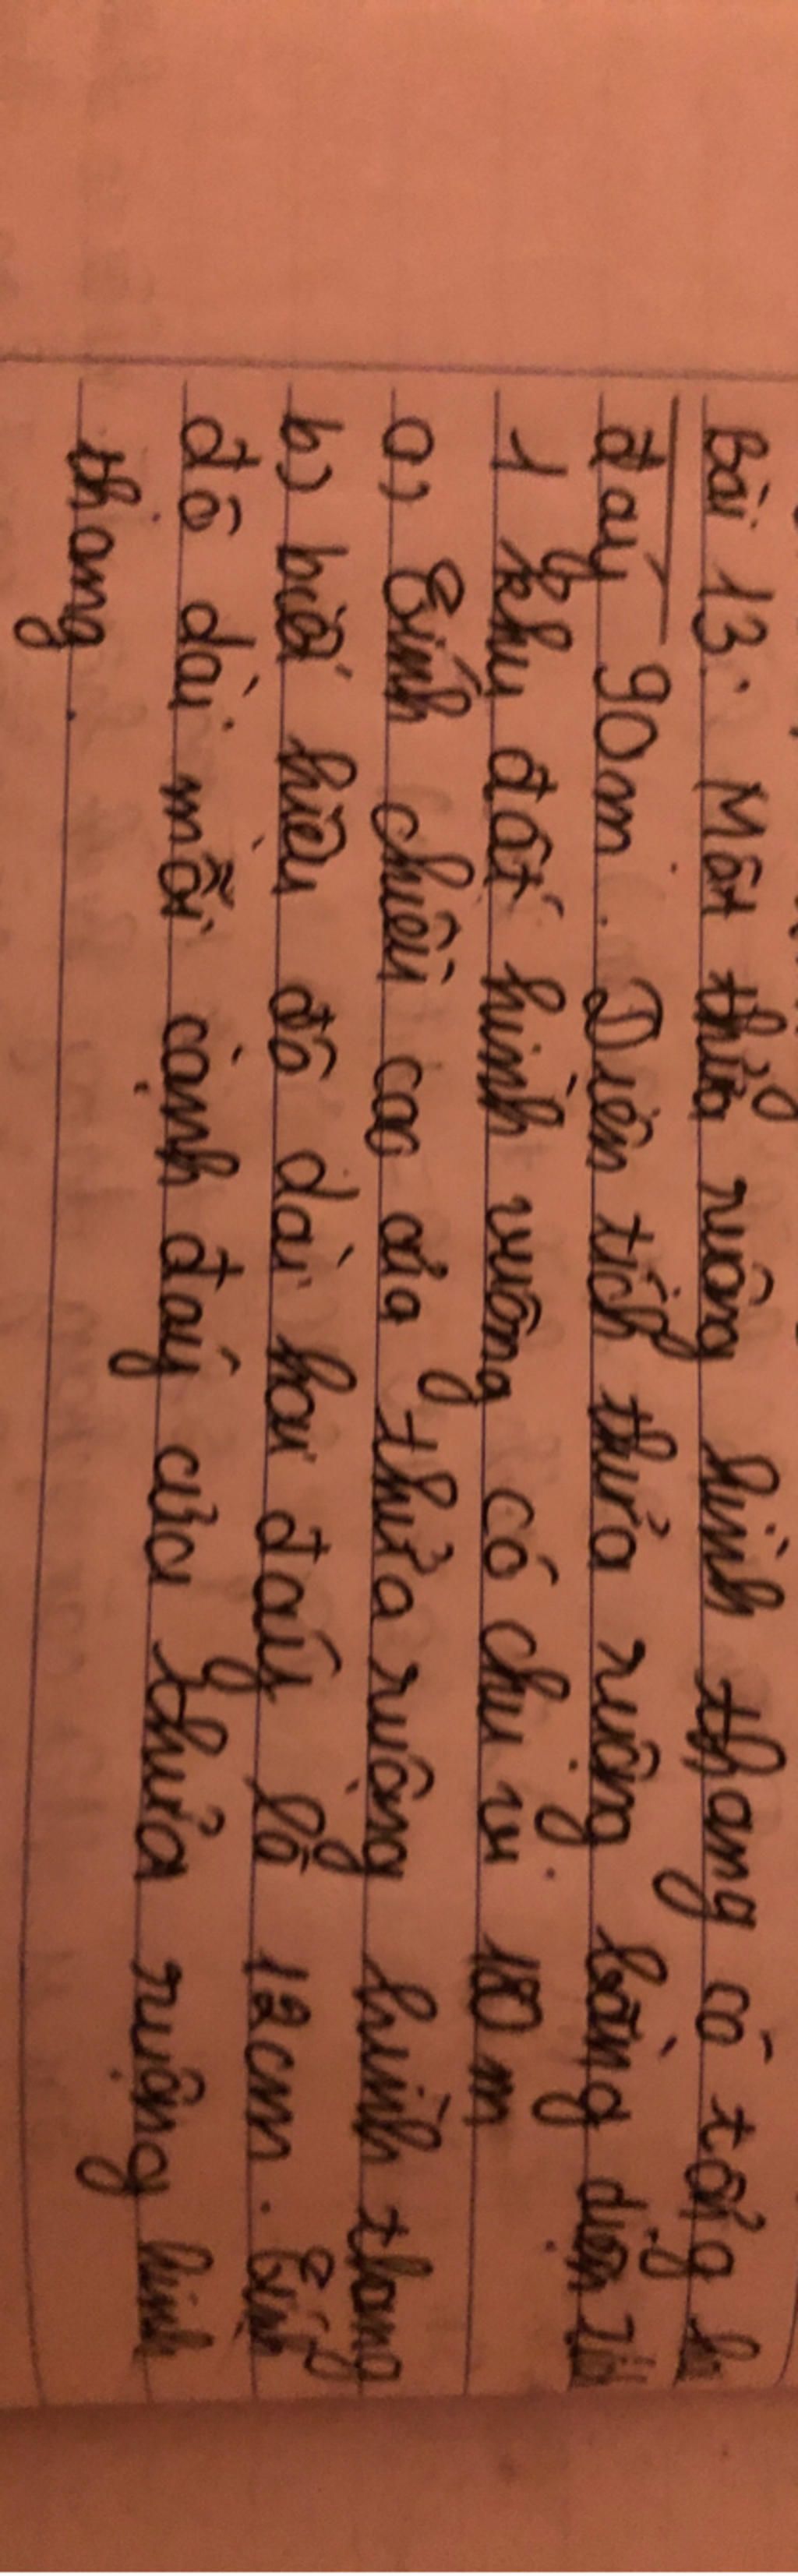 Bài 13: Một thửa ruộng hình thang có tổng
đáy 90m. Diện tích thửa ruộng bằng diện
1 khu đất hình vuông có chu vi 180 m
a) Tính chiều cao của thửa ruộng hình thang
b) biết hiệu độ dài hai đáy là 12cm. Tính
độ dài mỗi cạnh đáy của thửa ruộng hình
thang.